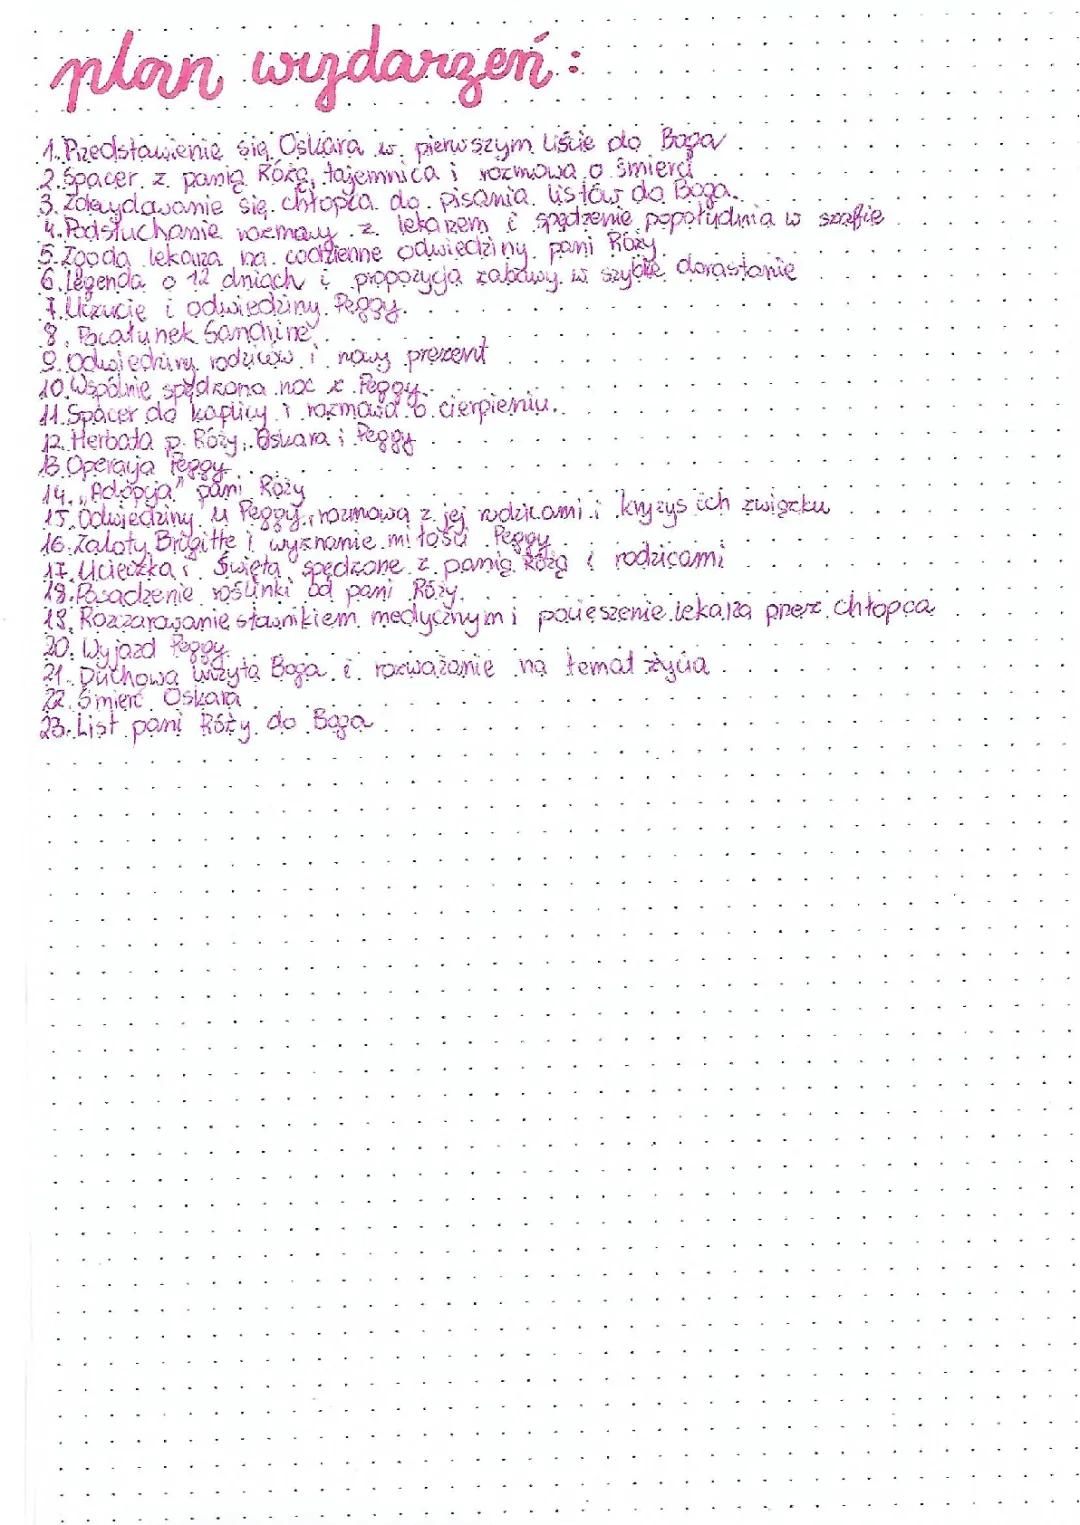 plan wydarzeń:
1. Przedstawienie się Oskara w pierwszym liście do Boga
2. Spacer z panią Różą, tajemnica i rozmowa o śmierci
3. Zdecydowanie się chłopca do pisania listów do Boga.
4. Podsłuchanie rozmowy z lekarzem i spędzenie popołudnia w szafie
5. Zgoda lekarza na codzienne odwiedziny pani Róży
6. Legenda o 12 dniach i propozycja zabawy w szybkie dorastanie
7. Uczucie i odwiedziny Peggy.
8. Pocałunek Sandrine
9. Odwiedziny rodziców i nowy prezent
10. Wspólnie spędzona noc z Peggy.
11. Spacer do kaplicy i rozmowa o cierpieniu.
12. Herbata p. Róży, Oskara i Peggy
13. Operacja Peggy
14. „Adopcja" pani Róży
15. Odwiedziny u Peggy, rozmowa z jej rodzicami i kryzys ich związku
16. Zaloty Brigitte i wyznanie miłości Peggy
17. Ucieczka i Święta spędzone z panią Różą i rodzicami
18. Posadzenie roślinki od pani Róży.
19. Rozczarowanie słownikiem medycznym i pocieszenie lekarza przez chłopca
20. Wyjazd Peggy
21. Duchowa wizyta Boga i rozważanie na temat życia
22. Śmierć Oskara
23. List pani Róży do Boga